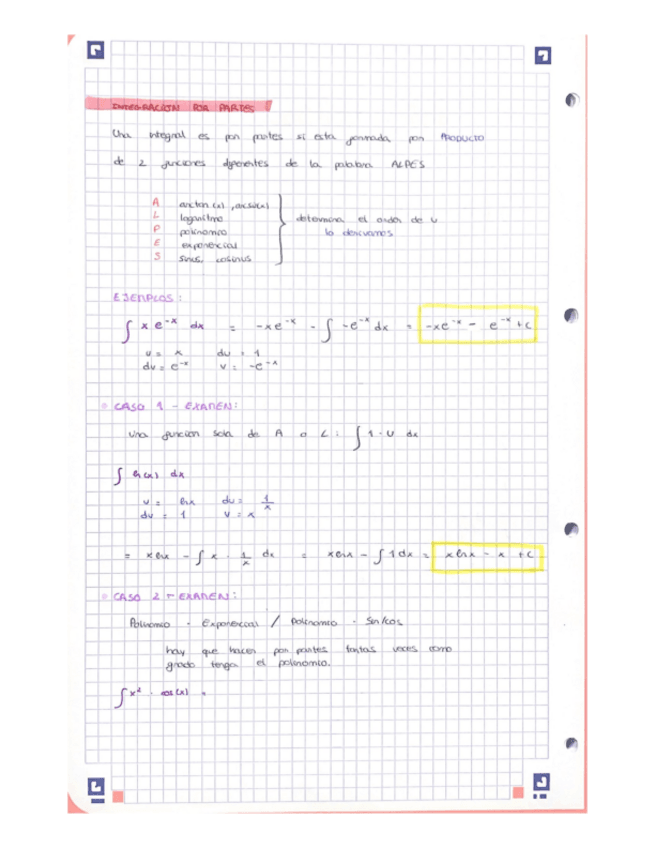 INTEGRACIÓN POR PARTES
Una integral es por partes si está formada por PRODUCTO
de 2 funciones diferentes de la palabra ALPES
A arctan(x), arcsin(x)
L logaritmo
P polinomio
E exponencial
S sinus, cosinus
determina el orden de u
lo derivamos
EJEMPLOS:
∫ x e^-x dx = -xe^-x - ∫ -e^-x dx = -xe^-x - e^-x + C
u = x du = 1
dv = e^-x v = -e^-x
CASO 1 - EXAMEN:
Una función sola de A o L: ∫ 1 · U dx
∫ ln(x) dx
u = lnx du = 1/x
dv = 1 v = x
= xlnx - ∫ x · 1/x dx = xlnx - ∫ 1 dx = xlnx - x + C
CASO 2 - EXAMEN:
Polinomio · Exponencial / Polinomio · Sin/cos
hay que hacer por partes tantas veces como
grado tenga el polinomio.
∫ x² · cos(x) =